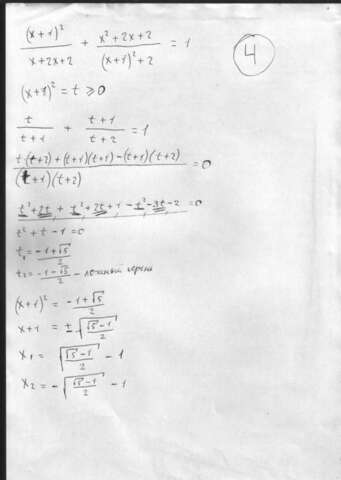 (x+1)² / (x+2x+2) + (x²+2x+2) / ((x+1)²+2) = 1
4
(x+1)² = t ⩾ 0
t/(t+1) + (t+1)/(t+2) = 1
(t(t+2) + (t+1)(t+1) − (t+1)(t+2)) / ((t+1)(t+2)) = 0
t²+2t + t²+2t+1 − t²−3t−2 = 0
t² + t − 1 = 0
t₁ = (−1+√5)/2
t₂ = (−1−√5)/2 −
(x+1)² = (−1+√5)/2
x+1 = ±√((√5−1)/2)
x₁ = √((√5−1)/2) − 1
x₂ = −√((√5−1)/2) − 1